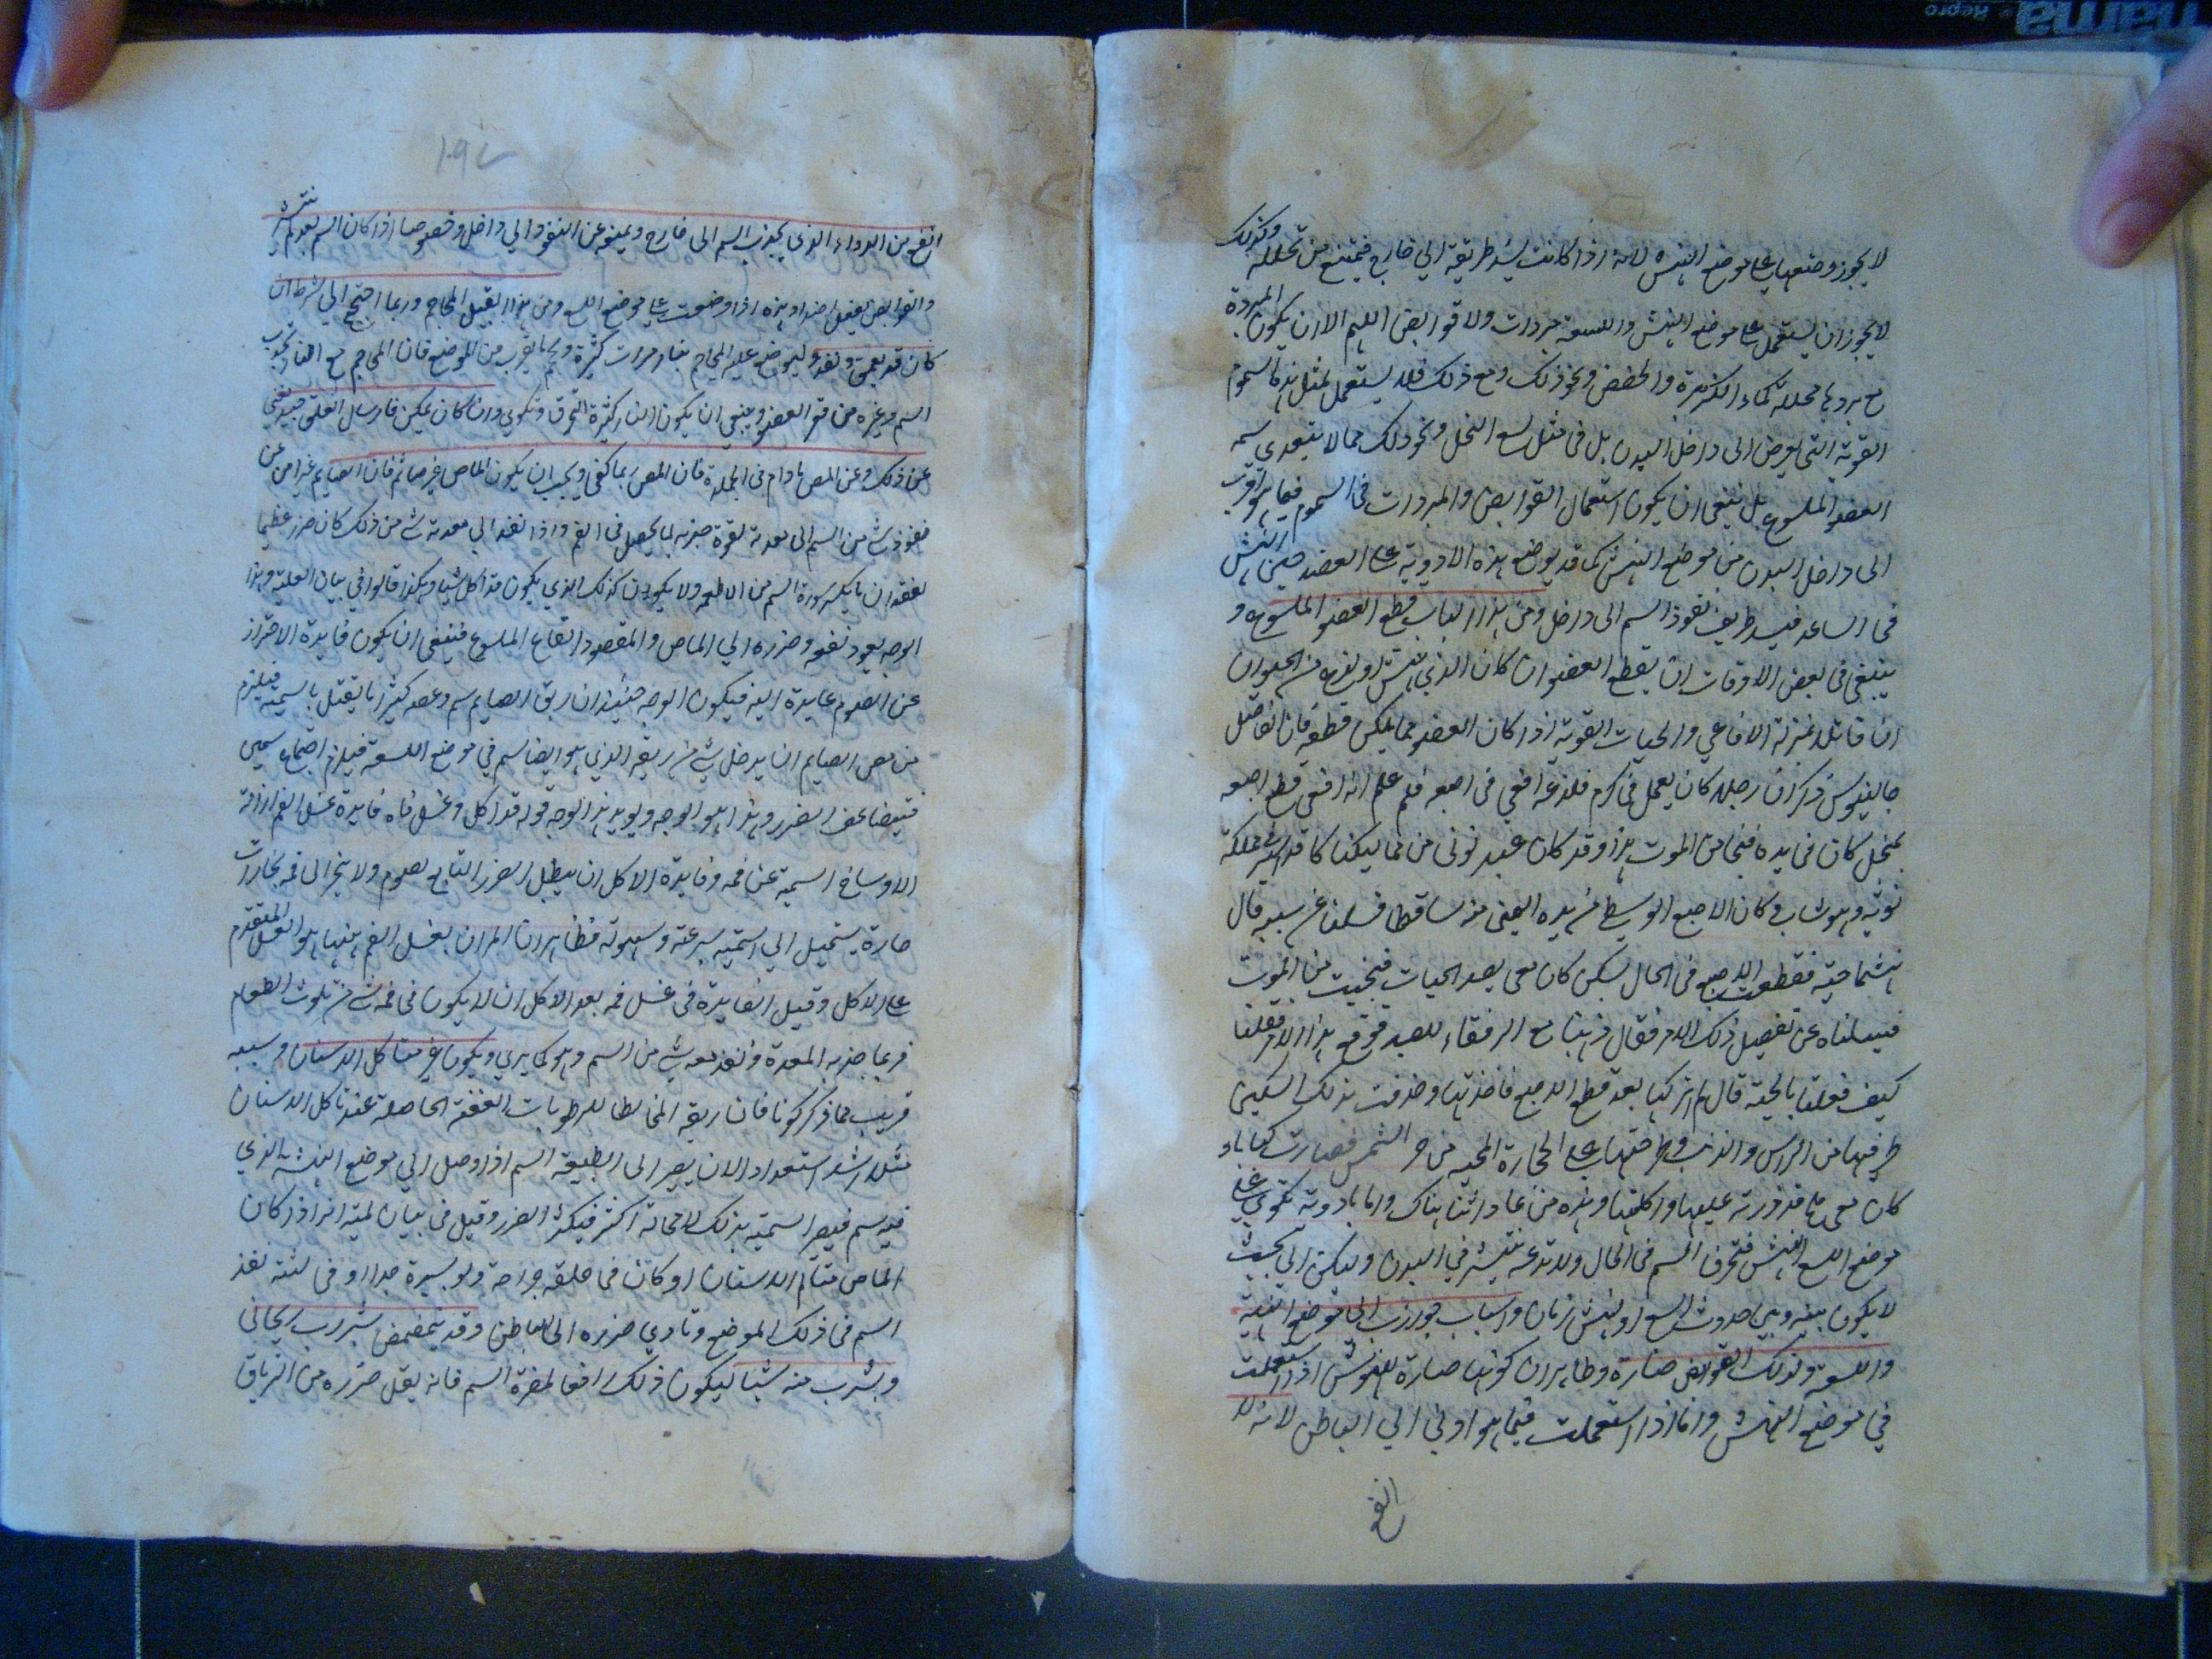 لا يجوز وضعها على موضع النهش لانه اذا كانت يسد طريقه الى خارج فيمتنع من تحلله وكذلك
لا يجوز ان يستعمل على موضع النهش واللسعة مبردات ولا قوابض اللهم الا ان يكون المبردة
مع بردها محللة كماء الكزبرة والحضض ونحو ذلك ومع ذلك فلا يستعمل لمثل هذه السموم
القوية التي يعرض الى داخل البدن بل في مثل لسع النحل ونحو ذلك مما لا يتعدى سمه
العضو الملسوع بل ينبغي ان يكون استعمال القوابض والمبردات في السموم فيما هو اقرب
الى داخل البدن من موضع النهش كما قد يوضع هذه الادوية على العضد حين النهش
في الساعد فيسد طريق نفوذ السم الى داخل ومن هذا الباب قطع العضو الملسوع و
ينبغي في بعض الاوقات ان يقطع العضو ان كان الذي نهش او لدغ من الحيوان
انه قاتل بمنزلة الافاعي والحيات القوية اذا كان العضو مما يمكن قطعه فان الفاضل
جالينوس ذكر ان رجلا كان يعمل في كرم فلدغه افعى في اصبعه فلم علم انه افعى قطع اصبعه
بمنجل كان في يده فنجا من الموت هذا وقد كان عبد نوبي من
نوبة وهو شاب وكان الاصبع الوسطى من يده اليمنى منه ساقطا فسلنا عن سببه قال
نهشها حية فقطعت الاصبع في الحال بسكين كان معى يصد الحيات فنجيت من الموت
فسلناه عن تفصيل ذلك الامر فقال ذهبنا مع الرفقاء للصيد فوقع هذا الامر فقلنا
كيف فعلت بالحية قال لم اتركها بعد قطع الاصبع فاخذتها وحذفت بذلك السكين
طرفيها من الراس والذنب وطرحتها على الحجارة المحمية من حر الشمس فصارت كبابا و
كان معى ملح قد ذررته عليها واكلتها وهذه من عاداتنا هناك واما بادوية تكوي على
موضع اللسع والنهش فتحرق السم في الحال ولا تدعه ينتشر في البدن وليكن الكي بحيث
لا يكون بينه وبين حدوث اللسع او النهش زمان واسباب جواذب الى موضع النهشة
واللسعة وكذلك القوابض ضارة وظاهر ان كونها ضارة للنهوش اذا استعملت
في موضع النهش واما اذا استعملت فيما هو ادنى الى الباطن لانه لا
انفع
١٠٩٧
انفع من الدواء الذي يجذب السم الى خارج ويمنع عن النفوذ الى داخل وخصوصا اذا كان السم بعد لم ينتشر
والقوابض يفعل ضد هذه اذا وضعت على موضع اللسع ومن هذا القبيل المحاجم وربما احتيج الى شرط ان
كان قد تعمق ونفذ وليوضع عليه المحاجم بنار مرات كثيرة ويحجم ما يقرب من الموضع فان المحاجم مع النار تجذب
السم وغيره من قعر العضو وينبغي ان يكون النار كثيرة لتحرق وتكوى وان كان يمكن فارسال العلق جيد يغني
عن ذلك وعن المص ما دام في الجلدة فان المص ربما كفى ويجب ان يكون الماص غير صائم فان الصايم غير امن عن
نفوذ شي من السم الى معدته لقوة جذبه لما يحصل في الفم واذا نفذ الى معدته شي من ذلك كان ضرره عظيما
لفقدان ما يكسر سورة السم من الاطعمة ولا يكون كذلك الذي يكون قد اكل شيا هكذا قالوا في بيان العلية وهذا
الوجه يعود نفعه وضرره الى الماص والمقصود انتفاع الملسوع فينبغي ان يكون فايدة الاحتراز
عن الصوم عايدة اليه فيكون الوجه حينئذ ان ريق الصايم سم وعضه كثيرا ما يقتل بالسمية فيلزم
من مص الصايم ان يدخل شي من ريقه الذي هو ايضا سم في موضع اللسعة فيلزم اجتماع سمين
فيتضاعف الضرر وهذا هو الوجه ويؤيد هذا الوجه قوله قد اكل وغسل فاه فايدة غسل الفم ازالة
الاوساخ السمية عن فمه وفايدة الاكل ان يبطل الضرر التابع لصوم ولا ينجر الى فمه بخارات
حارة يستحيل الى السمية بسرعة وسهولة فظاهر ان المراد بغسل الفم ههنا هو الغسل المتقدم
على الاكل وقيل الفايدة في غسل فمه بعد الاكل ان لا يكون في فمه شي من تلوث الطعام
فربما جذبه المعدة ونفذ معه شي من السم وهو كما يرى ويكون غير متاكل الاسنان وسببه
قريب مما ذكر كونا فان ريقه المخالط للرطوبات العفنة الحاصلة عند تاكل الاسنان
مثلا اشد استعدادا لان يصير الى الطبيعة السم اذا وصل الى موضع النهشة الذي
فيه سم فيصير السمية بذلك لا محالة اكثر فيكثر الضرر وقيل في بيان لميته انه اذا كان
الماص متاكل الاسنان او كان في حلقه جراحة ولو يسيرة جدا او في لثته نفذ
السم في ذلك الموضع وتادى ضرره الى الباطن وقد يتمضمض بشراب ريحاني
ويشرب منه شيا ليكون ذلك دافعا لمضرة السم فانه يقل ضرره من الترياق